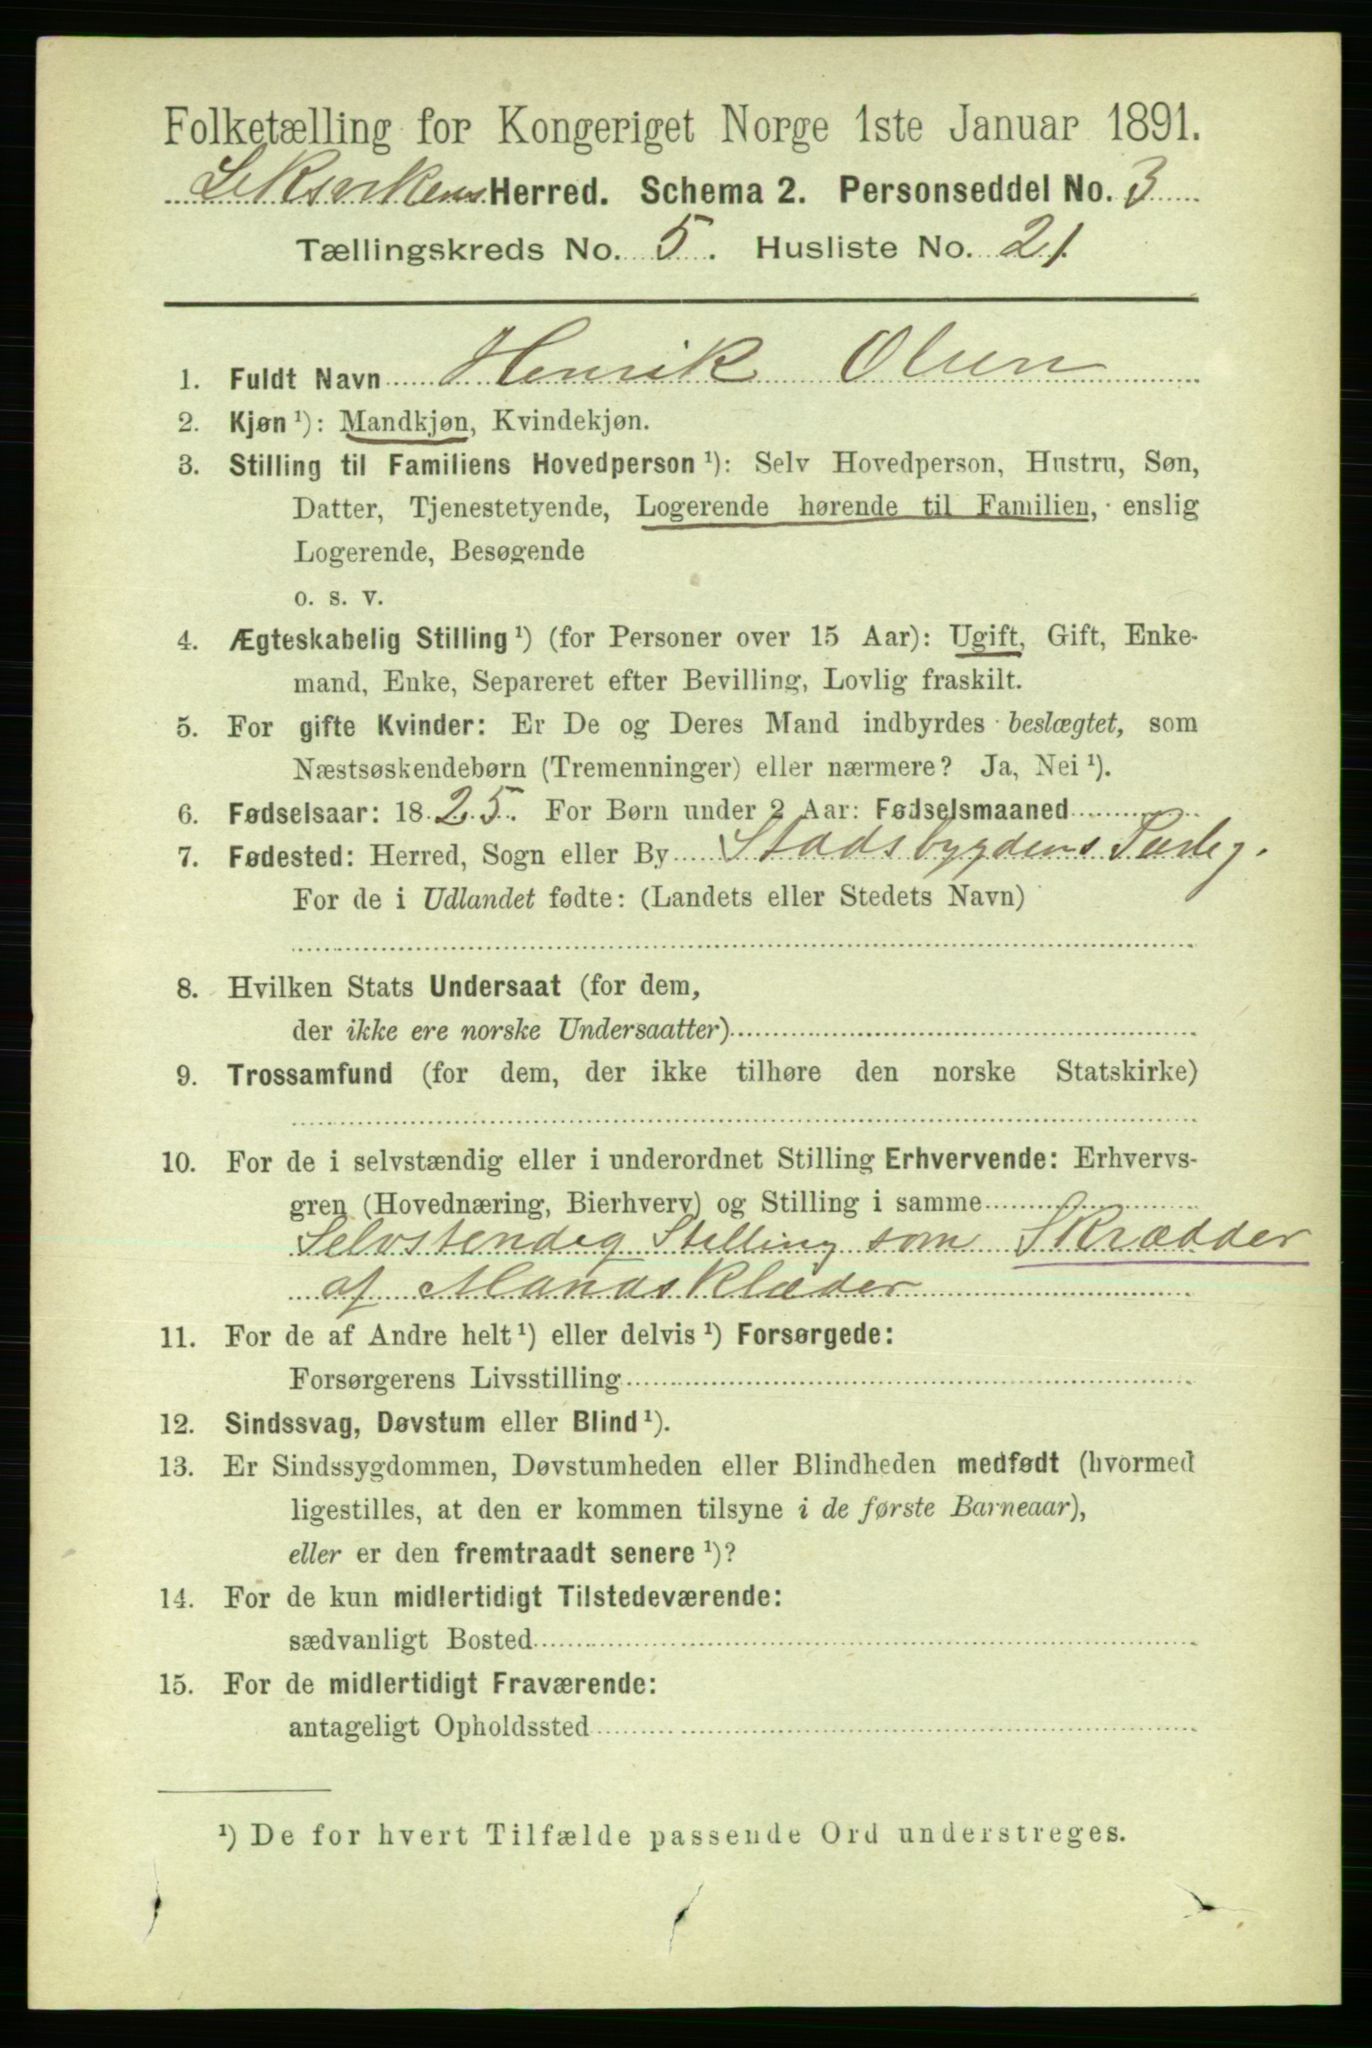 Folketælling for Kongeriget Norge 1ste Januar 1891.
Leksvikens Herred. Schema 2. Personseddel No. 3
Tællingskreds No. 5. Husliste No. 21.
1. Fuldt Navn Henrik Olsen
2. Kjøn ¹): Mandkjøn, Kvindekjøn.
3. Stilling til Familiens Hovedperson ¹): Selv Hovedperson, Hustru, Søn,
Datter, Tjenestetyende, Logerende hørende til Familien, enslig
Logerende, Besøgende
o. s. v.
4. Ægteskabelig Stilling ¹) (for Personer over 15 Aar): Ugift, Gift, Enke-
mand, Enke, Separeret efter Bevilling, Lovlig fraskilt.
5. For gifte Kvinder: Er De og Deres Mand indbyrdes beslægtet, som
Næstsøskendebørn (Tremenninger) eller nærmere? Ja, Nei ¹).
6. Fødselsaar: 1825. For Børn under 2 Aar: Fødselsmaaned
7. Fødested: Herred, Sogn eller By Stadsbygdens Præsteg.
For de i Udlandet fødte: (Landets eller Stedets Navn)
8. Hvilken Stats Undersaat (for dem,
der ikke ere norske Undersaatter)
9. Trossamfund (for dem, der ikke tilhøre den norske Statskirke)
10. For de i selvstændig eller i underordnet Stilling Erhvervende: Erhvervs-
gren (Hovednæring, Bierhverv) og Stilling i samme
Selvstendig Stilling som Skrædder
af Mandsklæder
11. For de af Andre helt ¹) eller delvis ¹) Forsørgede:
Forsørgerens Livsstilling
12. Sindssvag, Døvstum eller Blind ¹).
13. Er Sindssygdommen, Døvstumheden eller Blindheden medfødt (hvormed
ligestilles, at den er kommen tilsyne i de første Barneaar),
eller er den fremtraadt senere ¹)?
14. For de kun midlertidigt Tilstedeværende:
sædvanligt Bosted
15. For de midlertidigt Fraværende:
antageligt Opholdssted
¹) De for hvert Tilfælde passende Ord understreges.